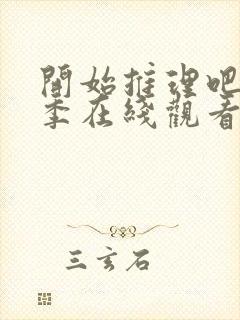 開始推理吧
季在綫觀看
三玄石